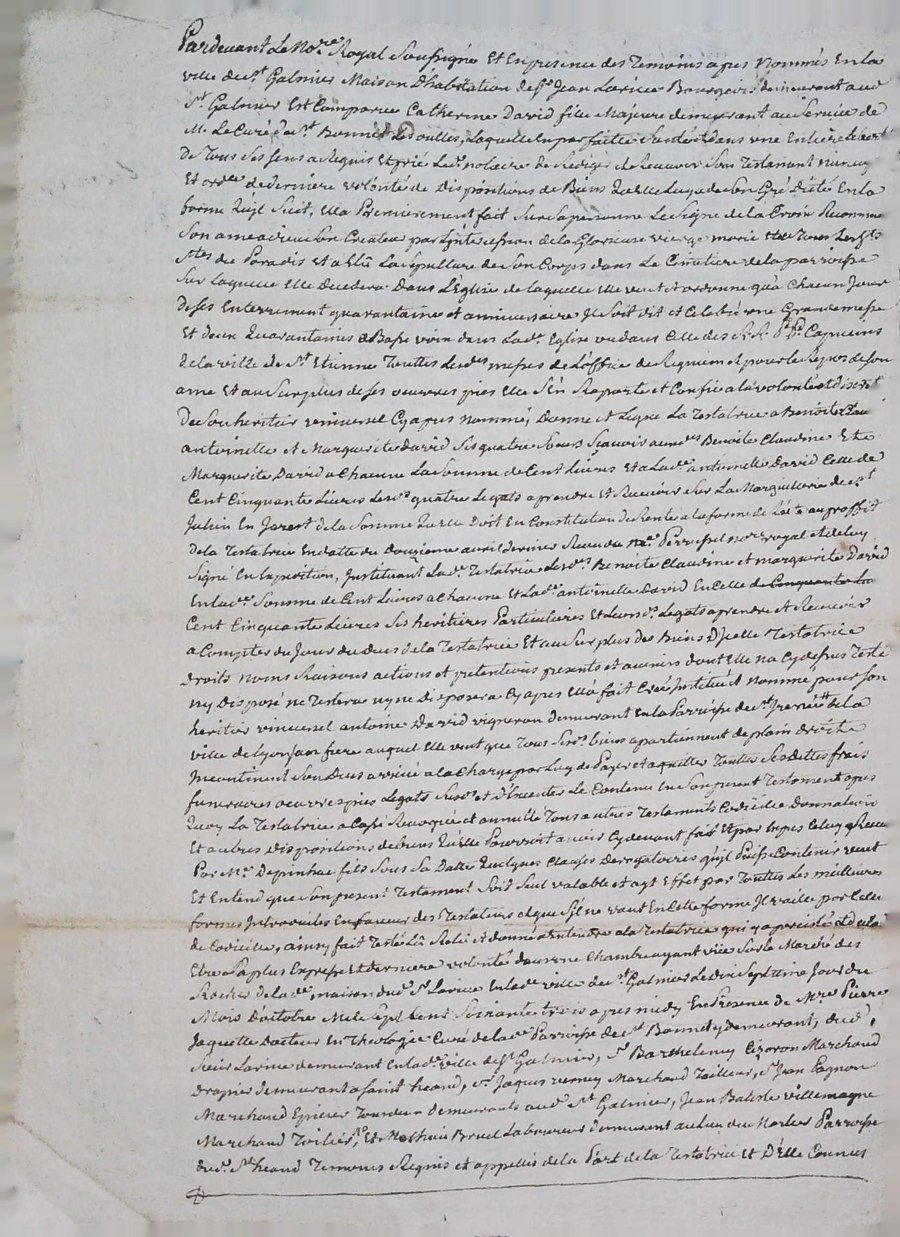 Pardevant Le No.re Royal Soussigné Et En presence des Temoins apres Nommés En la
ville de St Galmier Maison D'habitation de Sr Jean Larive Bourgeois demeurant aud
St Galmier Est Comparue Catherine David fille Majeure demeurant au Service de
Mr Le Curé de St Bonnet Les oulles, Laquelle En parfaitte Santé et dans une Entiere Liberté
De Tous Ses Sens a Requis Et prié Led. notaire de Rediger et Recevoir Son Testament Nuncup
Et ord.re de derniere volonté de Dispositions de Biens Qu'elle Luy a de Son Gré Dicté En la
forme Quil Suit, Ella Premierement fait Sur Sa personne Le Signe de la Croix Recommandé
Son ame a dieu Son Createur par L'intercession de la Glorieuse vierge marie et de Tous Les Sts
Stes du Paradis Et a Elû La Sepulture de Son Corps dans Le Cimetiere de la parroisse
Sur Laquelle Elle Decedera Dans L'Eglise de laquelle Elle veut Et ordonne qu'a Chacun Jour
de Ses Enterrement quarantaine et anniversaire Il Soit dit et Celebré une Grandemesse
Et deux Quarantaines a Basse voix dans Lad. Eglise ou dans Celle des R.R. P.P. Capucins
de la ville de St Etienne Touttes Lesd.es messes de L'office de Requiem et pour le Repos de Son
ame Et au Surplus de Ses oeuvres pies Elle S'En Raporte et Confie a la volonté et discret.
De Son heritier universel Cy apres nommé, Donne et Legue La Testatrice a Benoite Claudine
antoinette et Marguerite David Ses quatre Soeurs Scavoir auxd.es Benoite Claudine Et a
Marguerite David a Chacune La Somme de Cent Livres Et a Lad.e antoinette David Celle de
Cent Cinquante Livres Lesd.s quatre Legats a prendre Et Recevoir Sur La Marguillerie de St
Julien En Jarest de la Somme Qu'elle Doit En Constitution de Rente a la forme de L'acte au proffit
de la Testatrice En datte du Douzieme avril dernier Recu du Me. Perrussel no.re royal et de luy
Signé En Expedition, Instituant Lad.e Testatrice Lesd.es Benoite Claudine et marguerite David
En lad.e Somme de Cent Livres a Chacune Et Lad.e antoinette David En Celle de Cinquante Liv
Cent Cinquante Livres Ses heritieres Particulieres Et Leursd.s Legats a prendre Et Recevoir
a Compter du Jour du Deces de la Testatrice Et au Surplus des Biens D'jcelle Testatrice
Droits noms Raisons actions et pretentions presents et avenirs dont Elle n'a Cy dessus Testé
ny Disposé ne Testera ny ne Disposera Cy apres Ella fait Créé Institué et Nommé pour Son
heritier universel antoine David vigneron demeurant En la Parroisse de St Irenée de la
ville de Lyon Son frere auquel Elle veut que Tous Sesd.s biens apartiennent de plain droit
Incontinent Son Deces arrivé a la Charge par Luy de Payer et aquitter Touttes Ses Dettes frais
funeraires oeuvres pies Legats Susd.s et D'Executer Le Contenu En Son present Testament apres
Quoy La Testatrice a Cassé Revoqué et annullé Tous autres Testaments Codicille Donnation
Et autres Dispositions de biens Qu'elle Pourroit avoir Cy devant fait Et par Expres Celuy Recu
Par Me. Depinhac fils Sous Sa Datte Quelques Clauses Derogatoires qu'il Puisse Contenir veut
Et Entend que Son present Testament Soit Seul valable et ayt Effet par Touttes Les meilleures
formes Introduites En faveur des Testateurs et que S'il ne vaut En Cette forme Il vaille par Celle
de Codicille, ainsy fait Testé Lû Relû et donné a Entendre a la Testatrice qui y a persisté Et declaré
Etre Sa plus Expresse Et derniere volonté dans une Chambre ayant vüe Sur le Marché des
Roches de lad.e maison dud.t Sr Larive En lad.e ville de St Galmier Le dix Septieme Jour du
Mois d'octobre Mil Sept Cent Soixante trois apres midy En Presence de Mre Pierre
Jaquette Docteur En Theologie Curé de la de Parroisse de St Bonnet y demeurant, dud
Sieur Larive demeurant En lad.e ville de St Galmier, Sr Barthelemy Cizeron Marchand
Drapier demeurant a Saint heand, Sr Jaques remey Marchand Tailleur, Sr Jean Pagnon
Marchand Epicier Tous deux demeurants aud. St Galmier, Jean Batiste villemagne
Marchand Toilier, Et Mathieu Bruel Laboureur demeurant au Lieu des Parroisse
dud. St heand Temoins Requis et appellés de la Part de la Testatrice Et D'Elle Connus